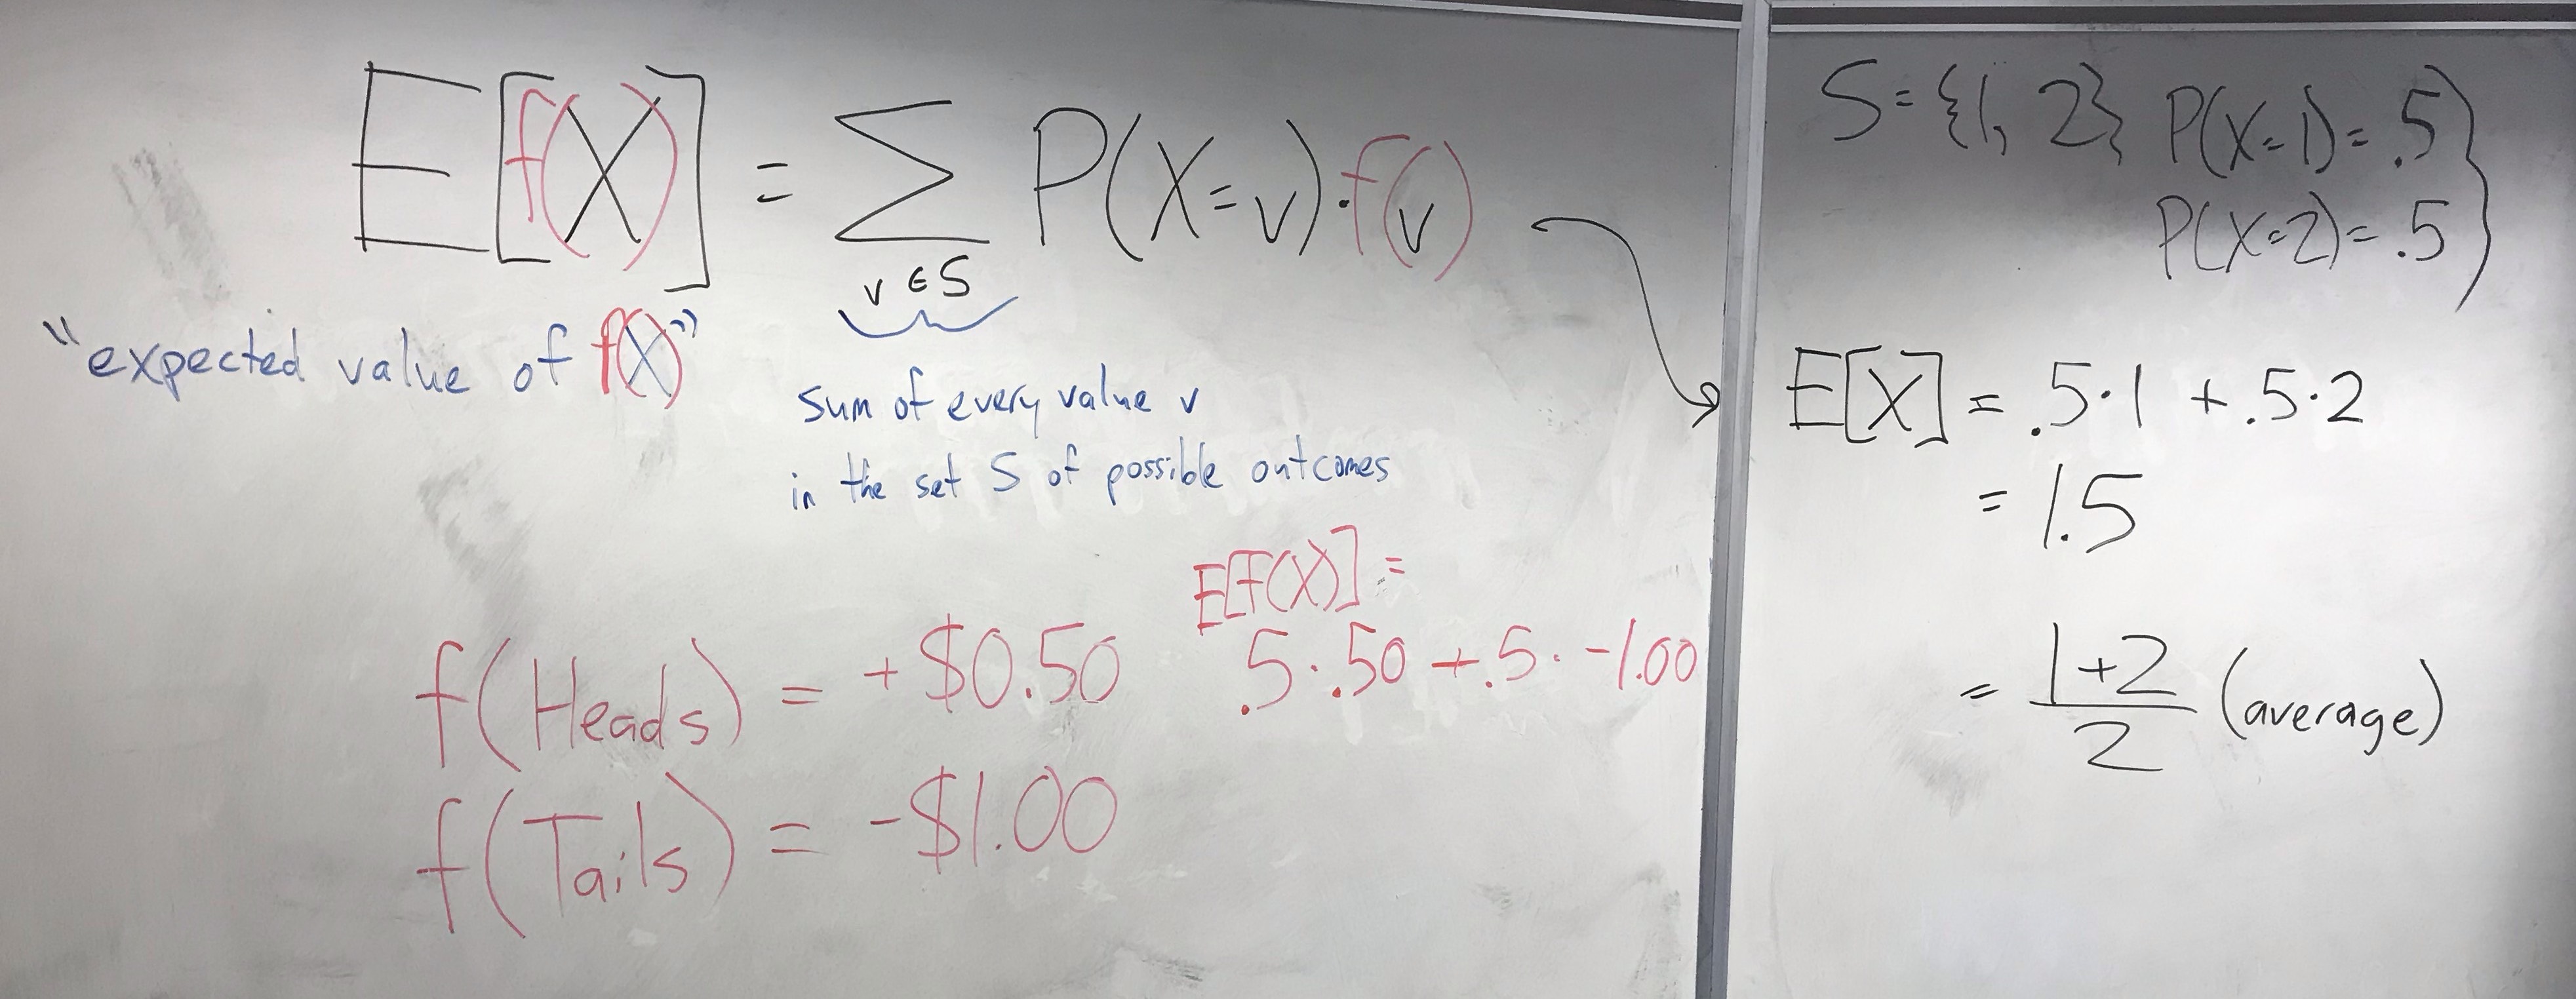 E[f(X)] = Σ P(X=v)·f(v)
v ∈ S
"expected value of f(X)"
sum of every value v
in the set S of possible outcomes
E[f(X)] =
.5·.50 + .5·-1.00
f(Heads) = +$0.50
f(Tails) = -$1.00
S={1, 2} P(X=1)=.5
P(X=2)=.5
E[X] = .5·1 + .5·2
= 1.5
= 1+2
2
(average)